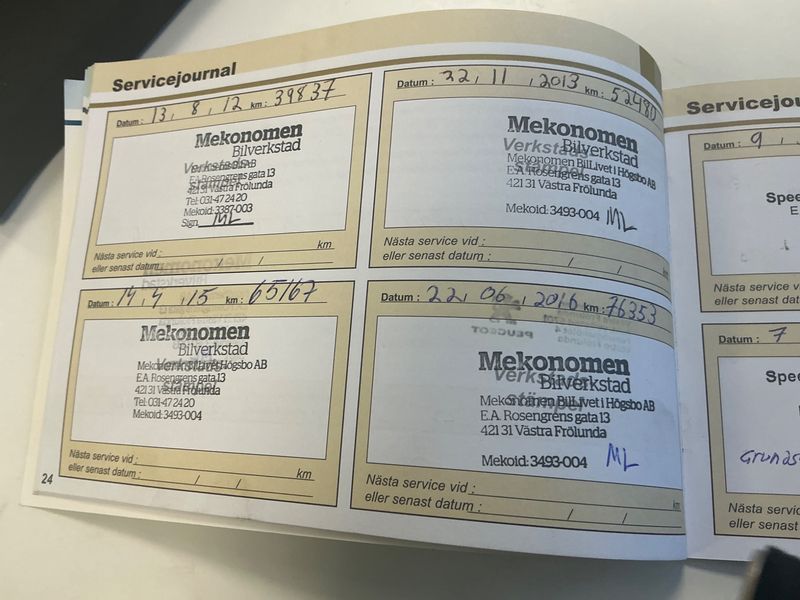 Servicejournal
Datum : 13, 8, 12 km : 39837
Mekonomen
Bilverkstad
Verkstads
stämpel
E.A. Rosengrens gata 13
421 31 Västra Frölunda
Tel: 031-47 24 20
Mekoid: 3387-003
Sign ML
Nästa service vid : km
eller senast datum : / /
Datum : 22, 11, 2013 km : 52480
Mekonomen
Bilverkstad
Verkstads
stämpel
Mekonomen BilLivet i Högsbo AB
E.A. Rosengrens gata 13
421 31 Västra Frölunda
Mekoid: 3493-004 ML
Nästa service vid :
eller senast datum : / /
Datum : 14, 4, 15 km : 65167
Mekonomen
Bilverkstad
Verkstads
stämpel
Mekonomen BilLivet i Högsbo AB
E.A. Rosengrens gata 13
421 31 Västra Frölunda
Tel: 031-47 24 20
Mekoid: 3493-004
Nästa service vid : km
eller senast datum : / /
Datum : 22, 06, 2016 km : 76353
PEUGEOT
Mekonomen
Bilverkstad
Verkstads
stämpel
Mekonomen BilLivet i Högsbo AB
E.A. Rosengrens gata 13
421 31 Västra Frölunda
Mekoid: 3493-004 ML
Nästa service vid :
eller senast datum : / /
24
Servicejou
Datum : 9,
Spee
E
Nästa service
eller senast da
Datum : 7
Spee
Grunds
Nästa servic
eller senast